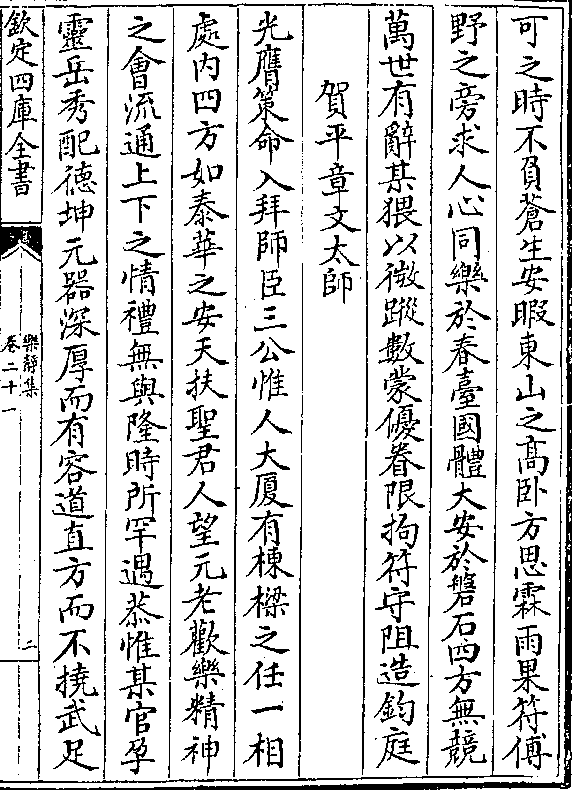 可之時不負蒼生安暇東山之髙卧方思霖雨果符傅
野之旁求人心同樂於春臺國體大安於磐石四方無競
萬世有辭某猥以微蹤數蒙優眷限拘符守阻造鈞庭
賀平章文太師
光膺策命入拜師臣三公惟人大厦有棟樑之任一相
處内四方如泰華之安天扶聖君人望元老歡樂精神
之會流通上下之情禮無與隆時所罕遇恭惟某官孕
靈岳秀配德坤元器深厚而有容道直方而不撓武足
欽定四庫全書
樂静集
卷二十一
二